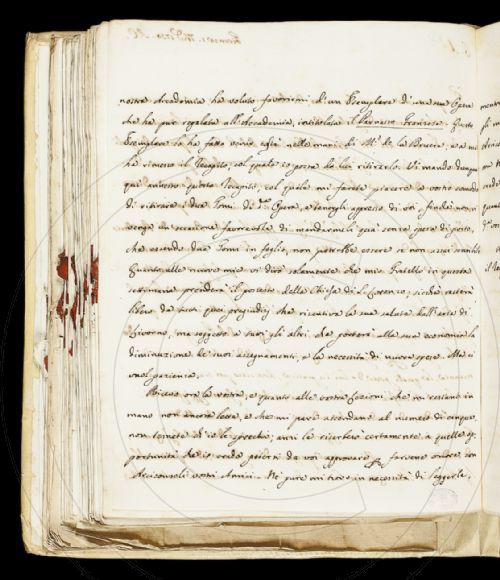 nostra Accademia ha voluto favorirmi d'un Esemplare d'una sua Opera
che ha pur regalata all'Accademia, intitolata il Parnasso Francese. Questo
Esemplare lo ha fatto venire nelle mani di Mr. de la Bruere, e a me
ha rimesso il Recapito, col quale io possa da lui ritirarlo. Vi mando dunque
qui annesso questo Recapito, col quale mi farete piacere a vostro comodo
di ritirare i due Tomi di Opera, e tenergli appresso di voi finché non vi
venga un'occasione favorevole di mandarmeli qua senza spesa di posta,
che essendo due Tomi in foglio, non potrebbe essere se non assai
Quanto alle nuove mie vi dirò solamente che mio Fratello in questa
settimana prenderà il possesso della Chiesa di S. Lorenzo, sicché resterà
libero da quei pregiudizj che risentiva la sua salute dall'aria di
Livorno, ma soggetto a tutti gli altri, che porterà alla sua economia la
diminuzione de' suoi assegnamenti, e la necessità di nuove spese. Ma ci
vuol pazienza.
Ricevo ora la vostra, e quanto alle vostre Lezioni, che mi restano in
mano non ancora lette, e che mi pare ascendano al numero di cinque,
non temete ch'io le sprechi; anzi le riserberò certamente a quelle op-
portunità che io credo potersi da voi approvare per farvene onore con
Arciconsoli vostri Amici. Né pure mi trovo in necessità di leggerle,